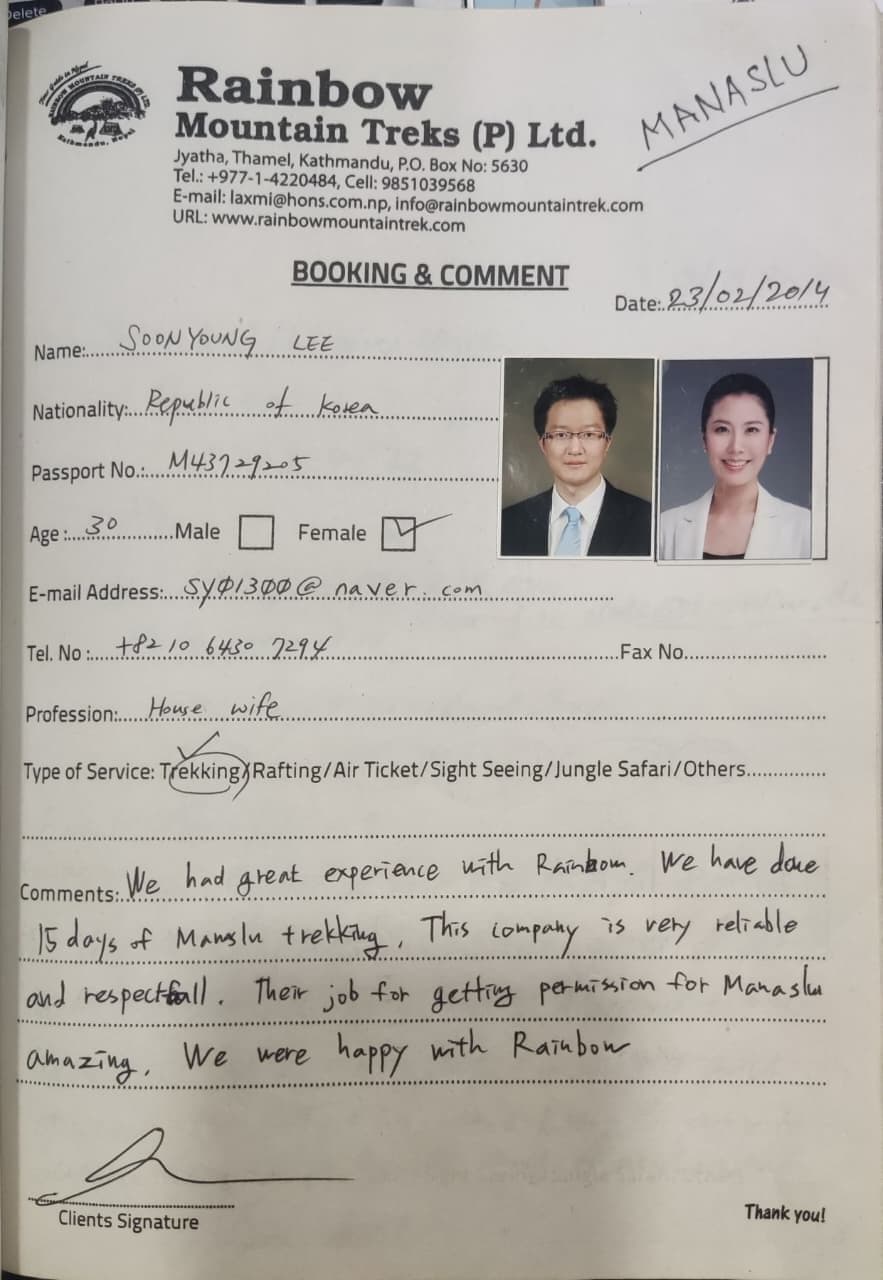 Delete
Your Guide in Nepal
RAINBOW MOUNTAIN TREKS (P) LTD.
Kathmandu, Nepal
Rainbow
Mountain Treks (P) Ltd.
MANASLU
Jyatha, Thamel, Kathmandu, P.O. Box No: 5630
Tel.: +977-1-4220484, Cell: 9851039568
E-mail: laxmi@hons.com.np, info@rainbowmountaintrek.com
URL: www.rainbowmountaintrek.com
BOOKING & COMMENT
Date: 23/02/2014
Name: SOONYOUNG LEE
Nationality: Republic of Korea
Passport No.: M43729205
Age : 30 Male Female
E-mail Address: SYØ13ØØ@naver.com
Tel. No : +82 10 6430 7294 Fax No.
Profession: House wife
Type of Service: Trekking/Rafting/Air Ticket/Sight Seeing/Jungle Safari/Others
Comments: We had great experience with Rainbow. We have done
15 days of Manslu trekking. This company is very reliable
and respectfull. Their job for getting permission for Manaslu
amazing. We were happy with Rainbow
Clients Signature
Thank you!